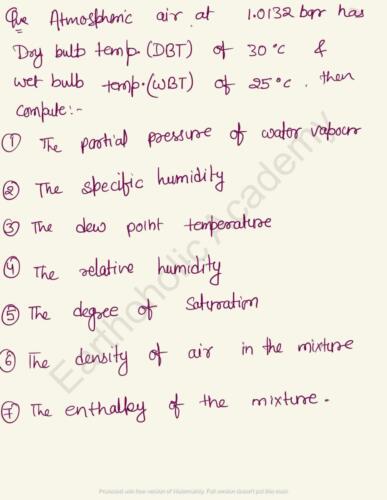 Que Atmospheric air at 1.0132 bar has
Dry bulb temp.(DBT) of 30°c &
wet bulb temp.(WBT) of 25°c. then
compute:-
① The partial pressure of water vapour
② The specific humidity
③ The dew point temperature
④ The relative humidity
⑤ The degree of Saturation
⑥ The density of air in the mixture
⑦ The enthalky of the mixture.
Earthoholic Academy